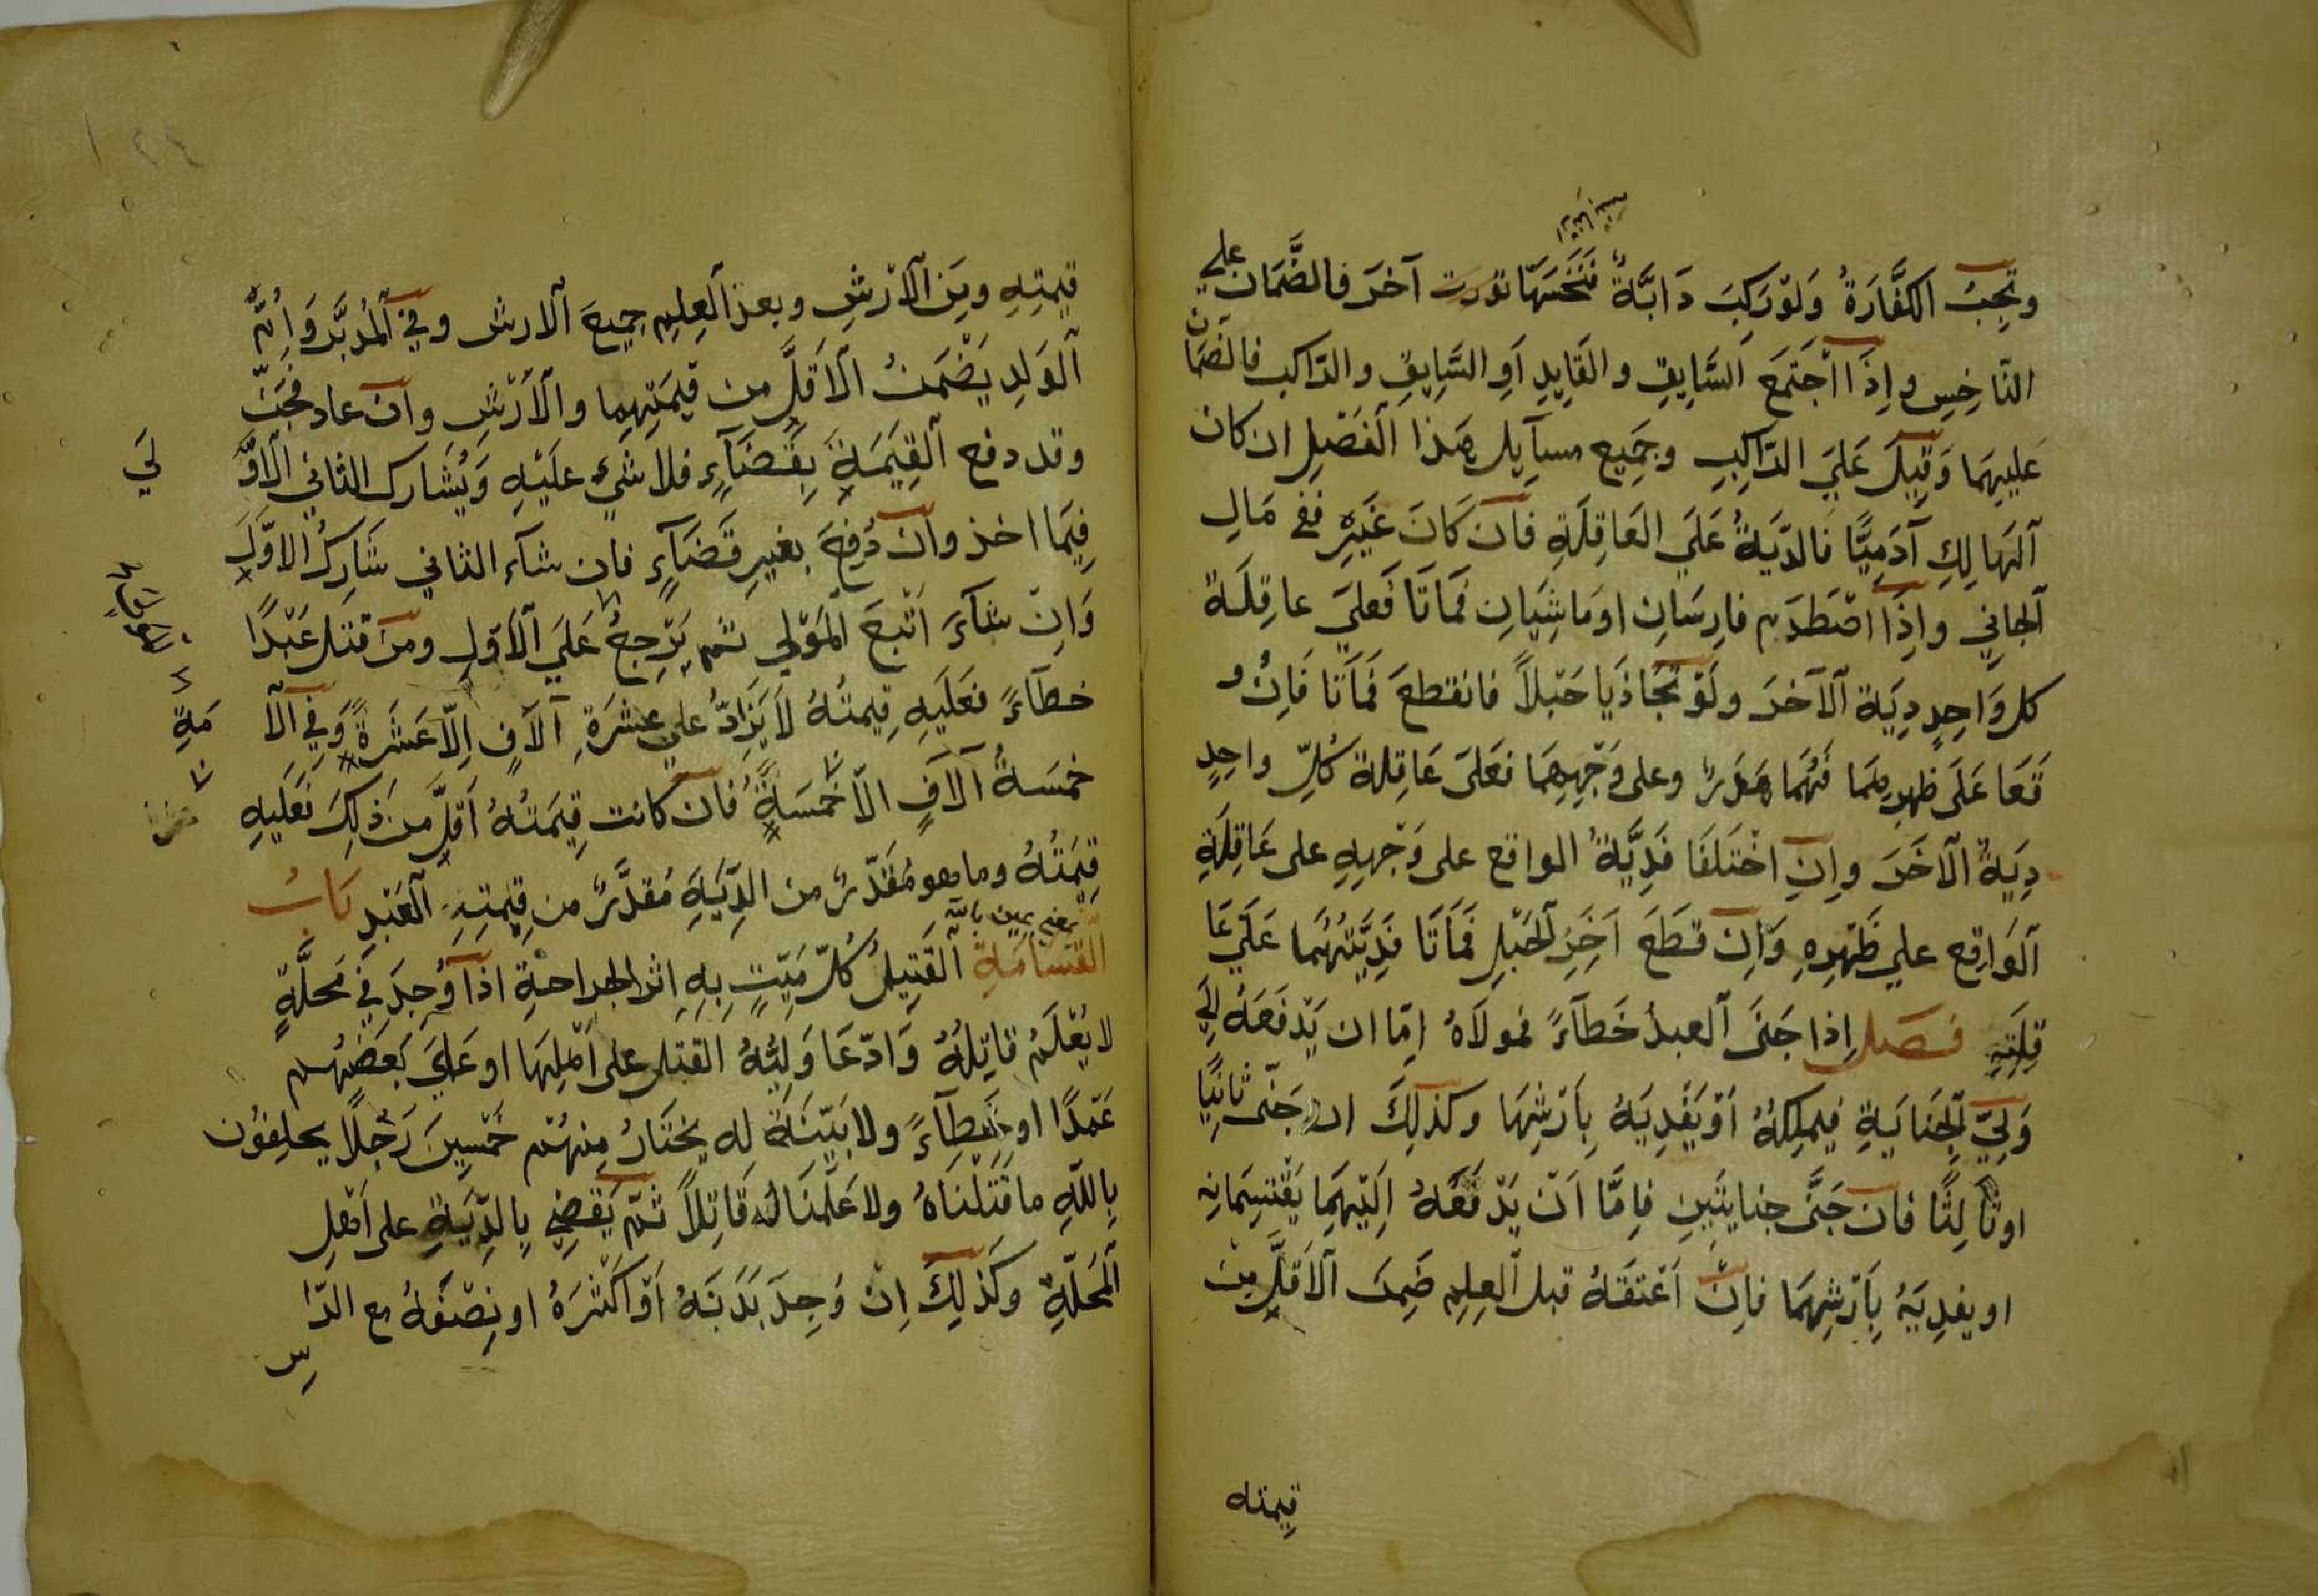 وتَجِبُ الكَفَّارَةُ وَلَوْ رَكِبَ دَابَّةً فَنَخَسَهَا آخَرَ فالضَّمَان على
النَّاخِسِ وإِذَا اجْتَمَعَ السَّايِق والقَايِدِ أَوِ السَّايِقِ والرّاكِب فالضَمَان
عليهِمَا وَقِيلَ عَلَيَ الرّاكِبِ وجَمِيع مسآيِل هٰذا الفَصْلِ ان كان
آلهَالِكِ آدَمِيًّا فَالدِّيَةُ عَلَيَ العَاقِلَةِ فَاَن كَانَ غَيْرِه ففِي مَالِ
آلجاني وإِذَا اصْطَدَم فارِسَانِ اومَاشِيَانِ فَمَاتَا فَعَلَيَ عاقِلَة
كل وَاحِدٍ دِيَة آلآخَرَ ولَوْ تَجَاذَبَا حَبْلاً فانقطعَ فَمَاتَا فَاِنْ و
قَعَا عَلَى ظهرِهِمَا فَهُمَا هَدَرٌ وعلى وَجْهِهِمَا فَعَلىَ عَاقِلة كُلِّ واحِدٍ
دِيَةُ الآخَرَ واِنِ اخْتَلَفَا فَدِيَّةُ الواقع على وَجْهِهِ على عَاقِلَةِ
آلوَاقِع علي ظَهْرِهِ وَاِنْ قَطَعَ آخَرُ آلحَبْلِ فَمَاتَا فَدِيَّتُهُمَا عَلَيَ عَا
قِلَتِهِ فصل اِذا جَنَى آلعبدُ خَطَآءً فمولَاهُ اِمّا ان يَدْفَعَهُ اِلَيَ
وَلِيّ آلجِنَايَةِ فيملِكهُ أَوْ يَفْدِيَهُ بِاَرْشِهَا وكذلِكَ ان جَنَى ثَانِيًا
او ثَالِثًا فان جَنَّى جنايتَينِ فاِمَّا اَنْ يَدْفَعَهُ اِلَيْهِمَا يَقْتَسِمَانِه
او يفدِيَهُ بِاَرْشِهِمَا فاِنْ اَعْتَقَهُ قبل آلعِلِم ضَمِنَ آلاَقَلَّ مِنْ
قيمته
قِيمَتِهِ ومِنَ آلاَرْشِ وبعد آلعِلِم جميعَ آلارش وفي آلمُدَبَّر وَاُمّ
آلوَلِدِ يَضْمَنُ آلاَقَلَّ من قِيمَتِهِمَا وآلاَرْشِ واِن عاد فجَنَى
وقد دفع آلقِيمَةَ بِقَضَآءِ فلا شيءَ عليْهِ وَيُشَارك الثاني آلاوَّ
لَي
فِيمَا اخذ واِن دُفِعَ بغيرِ قَضَآءٍ فان شآء الثاني شَارَكَ الاوّلَ
وَاِنْ شآءَ اَتْبَعَ المَوْلي ثم يَرْجِعُ عَلَيَ آلاَوّلِ ومن قَتَل عَبْدًا
خطآءً فَعَلَيهِ قِيمتُهُ لاَ يَزَادُ علي عشرَةِ آلاَفٍ اِلاّ عَشَرَةً وَفِي آلاَ
مَةِ
خمسَةُ آلآفٍ الاّ خَمْسَةً فان كانت قِيمَتُهُ اَقَلّ مِن ذَلِكَ فَعَلَيهِ
قِيمَتُهُ وما هو مُقَدّرٌ من الدِّيَةِ مُقدَّرٌ من قِيْمَتِهِ آلعَبْدِ بَابُ
يعني يمين بالله
القَسَامَةِ آلقَتِيلُ كُلّ مَيّتٍ بِهِ اثر الجراحةِ اذَا وُجِدَ فِي مَحلَّةٍ
لا يُعْلَمُ قاتِلُهُ وَادّعَا وَلِيُّهُ القَتل على اَهْلِهَا او عَلَيَ بَعْضِهُم
عَمْدًا او خَطاءً ولا بَيّنَةَ له يختَارُ مِنهُمْ خَمْسِينَ رَجُلًا يحلِفُون
بِاللَّهِ ما قَتَلْنَاهُ ولا عَلَمْنَا لهُ قَاتِلاً ثُمّ يَقْضِي بِالدِّيَةِ على اَهْلِ
آلمَحَلّةِ وكَذلِكَ اِن وُجِدَ بَدَنَهُ أَوْ اَكْثَرَهُ او نِصْفَهُ مع الرّا
س